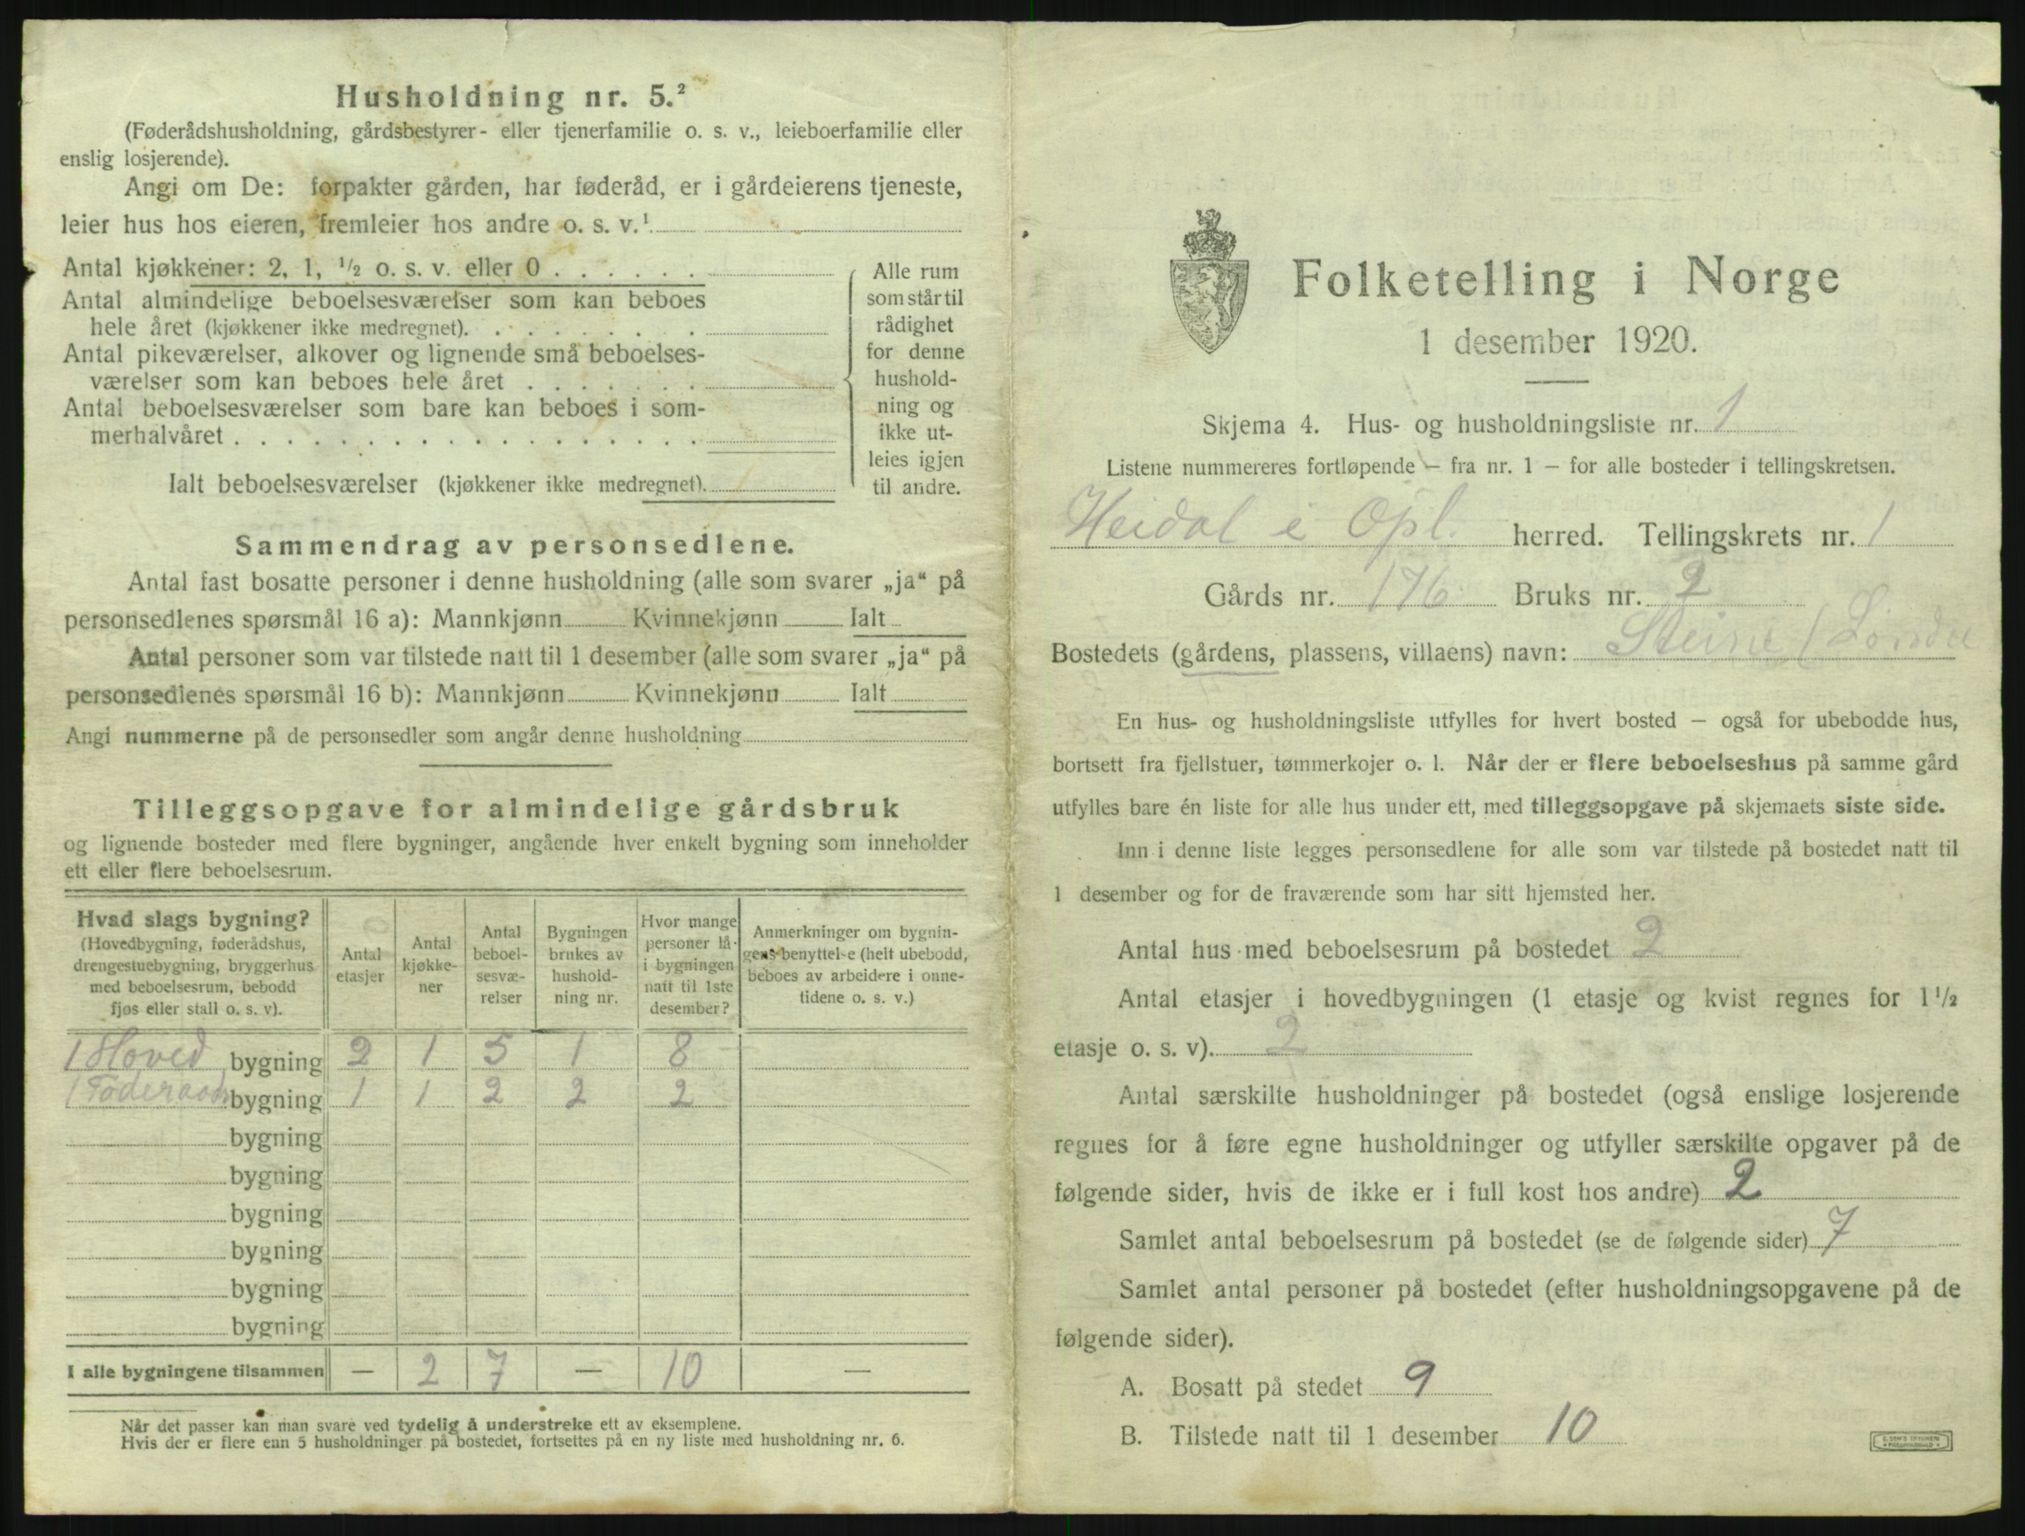 Husholdning nr. 5.²
(Føderådshusholdning, gårdsbestyrer- eller tjenerfamilie o. s. v., leieboerfamilie eller
enslig losjerende).
Angi om De: forpakter gården, har føderåd, er i gårdeierens tjeneste,
leier hus hos eieren, fremleier hos andre o. s. v.¹
Antal kjøkkener: 2, 1, ½ o. s. v. eller 0 . . . . . .
Antal almindelige beboelsesværelser som kan beboes
hele året (kjøkkener ikke medregnet). . . . . . . . .
Antal pikeværelser, alkover og lignende små beboelses-
værelser som kan beboes hele året . . . . . . .
Antal beboelsesværelser som bare kan beboes i som-
merhalvåret . . . . . . . . . . . . . . . . . .
Ialt beboelsesværelser (kjøkkener ikke medregnet).
Alle rum
som står til
rådighet
for denne
hushold-
ning og
ikke ut-
leies igjen
til andre.
Sammendrag av personsedlene.
Antal fast bosatte personer i denne husholdning (alle som svarer „ja“ på
personsedlenes spørsmål 16 a): Mannkjønn Kvinnekjønn Ialt
Antal personer som var tilstede natt til 1 desember (alle som svarer „ja“ på
personsedlenes spørsmål 16 b): Mannkjønn Kvinnekjønn Ialt
Angi nummerne på de personsedler som angår denne husholdning
Tilleggsopgave for almindelige gårdsbruk
og lignende bosteder med flere bygninger, angående hver enkelt bygning som inneholder
ett eller flere beboelsesrum.
Hvad slags bygning?
(Hovedbygning, føderådshus,
drengestuebygning, bryggerhus
med beboelsesrum, bebodd
fjøs eller stall o. s. v).
Antal
etasjer
Antal
kjøkke-
ner
Antal
beboel-
sesvæ-
relser
Bygningen
brukes av
hushold-
ning nr.
Hvor mange
personer lå
i bygningen
natt til 1ste
desember?
Anmerkninger om bygnin-
gens benyttelse (helt ubebodd,
beboes av arbeidere i onne-
tidene o. s. v.)
1 Hoved bygning 2 1 5 1 8
1 Føderaads bygning 1 1 2 2 2
bygning
bygning
bygning
bygning
bygning
bygning
I alle bygningene tilsammen — 2 7 — 10 —
Når det passer kan man svare ved tydelig å understreke ett av eksemplene.
Hvis der er flere enn 5 husholdninger på bostedet, fortsettes på en ny liste med husholdning nr. 6.
Folketelling i Norge
1 desember 1920.
Skjema 4. Hus- og husholdningsliste nr. 1
Listene nummereres fortløpende – fra nr. 1 – for alle bosteder i tellingskretsen.
Heidal i Opl. herred. Tellingskrets nr. 1
Gårds nr. 176 Bruks nr. 2
Bostedets (gårdens, plassens, villaens) navn: Steine
En hus- og husholdningsliste utfylles for hvert bosted – også for ubebodde hus,
bortsett fra fjellstuer, tømmerkojer o. l. Når der er flere beboelseshus på samme gård
utfylles bare én liste for alle hus under ett, med tilleggsopgave på skjemaets siste side.
Inn i denne liste legges personsedlene for alle som var tilstede på bostedet natt til
1 desember og for de fraværende som har sitt hjemsted her.
Antal hus med beboelsesrum på bostedet 2
Antal etasjer i hovedbygningen (1 etasje og kvist regnes for 1½
etasje o. s. v). 2
Antal særskilte husholdninger på bostedet (også enslige losjerende
regnes for å føre egne husholdninger og utfyller særskilte opgaver på de
følgende sider, hvis de ikke er i full kost hos andre) 2
Samlet antal beboelsesrum på bostedet (se de følgende sider) 7
Samlet antal personer på bostedet (efter husholdningsopgavene på de
følgende sider).
A. Bosatt på stedet 9
B. Tilstede natt til 1 desember 10